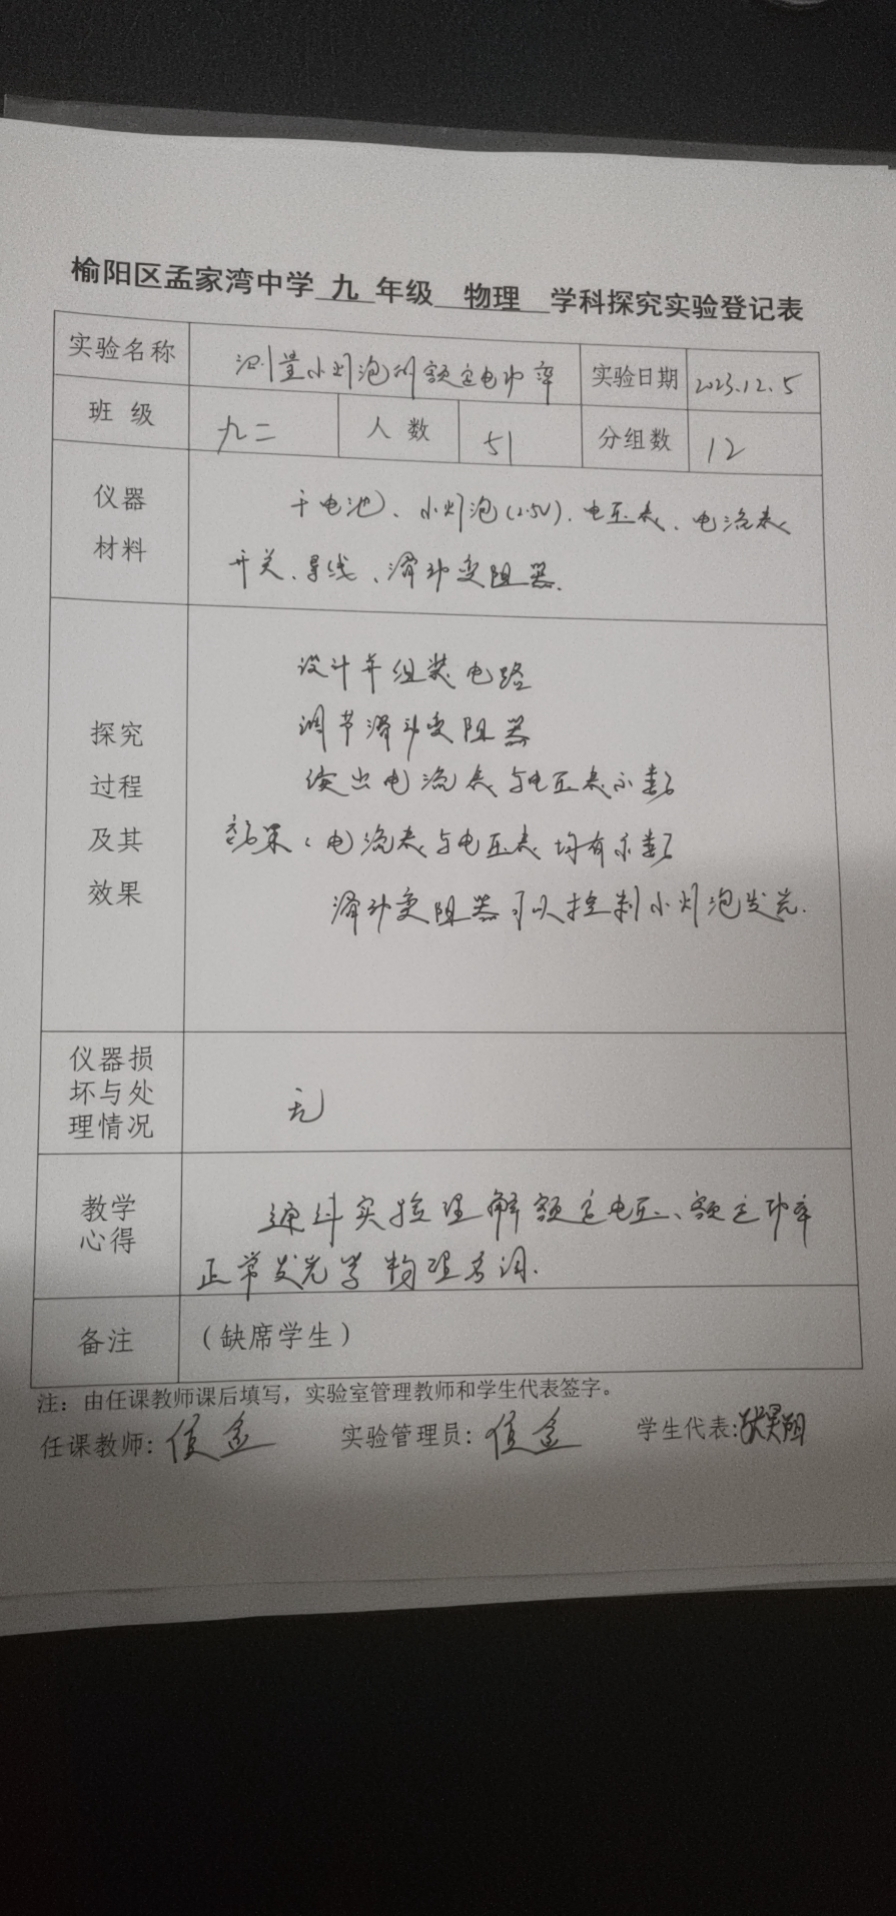 榆阳区孟家湾中学 九 年级 物理 学科探究实验登记表
实验名称 测量小灯泡的额定电功率 实验日期 2023.12.5
班 级 九二 人 数 51 分组数 12
仪器材料 干电池、小灯泡(2.5V)、电压表、电流表
开关、导线、滑动变阻器.
探究过程及其效果 设计并组装电路
调节滑动变阻器
读出电流表与电压表示数
效果:电流表与电压表均有示数
滑动变阻器可以控制小灯泡发光.
仪器损坏与处理情况 无
教学心得 通过实验理解额定电压、额定功率
正常发光等物理名词.
备注 (缺席学生)
注:由任课教师课后填写,实验室管理教师和学生代表签字。
任课教师: 实验管理员: 学生代表: